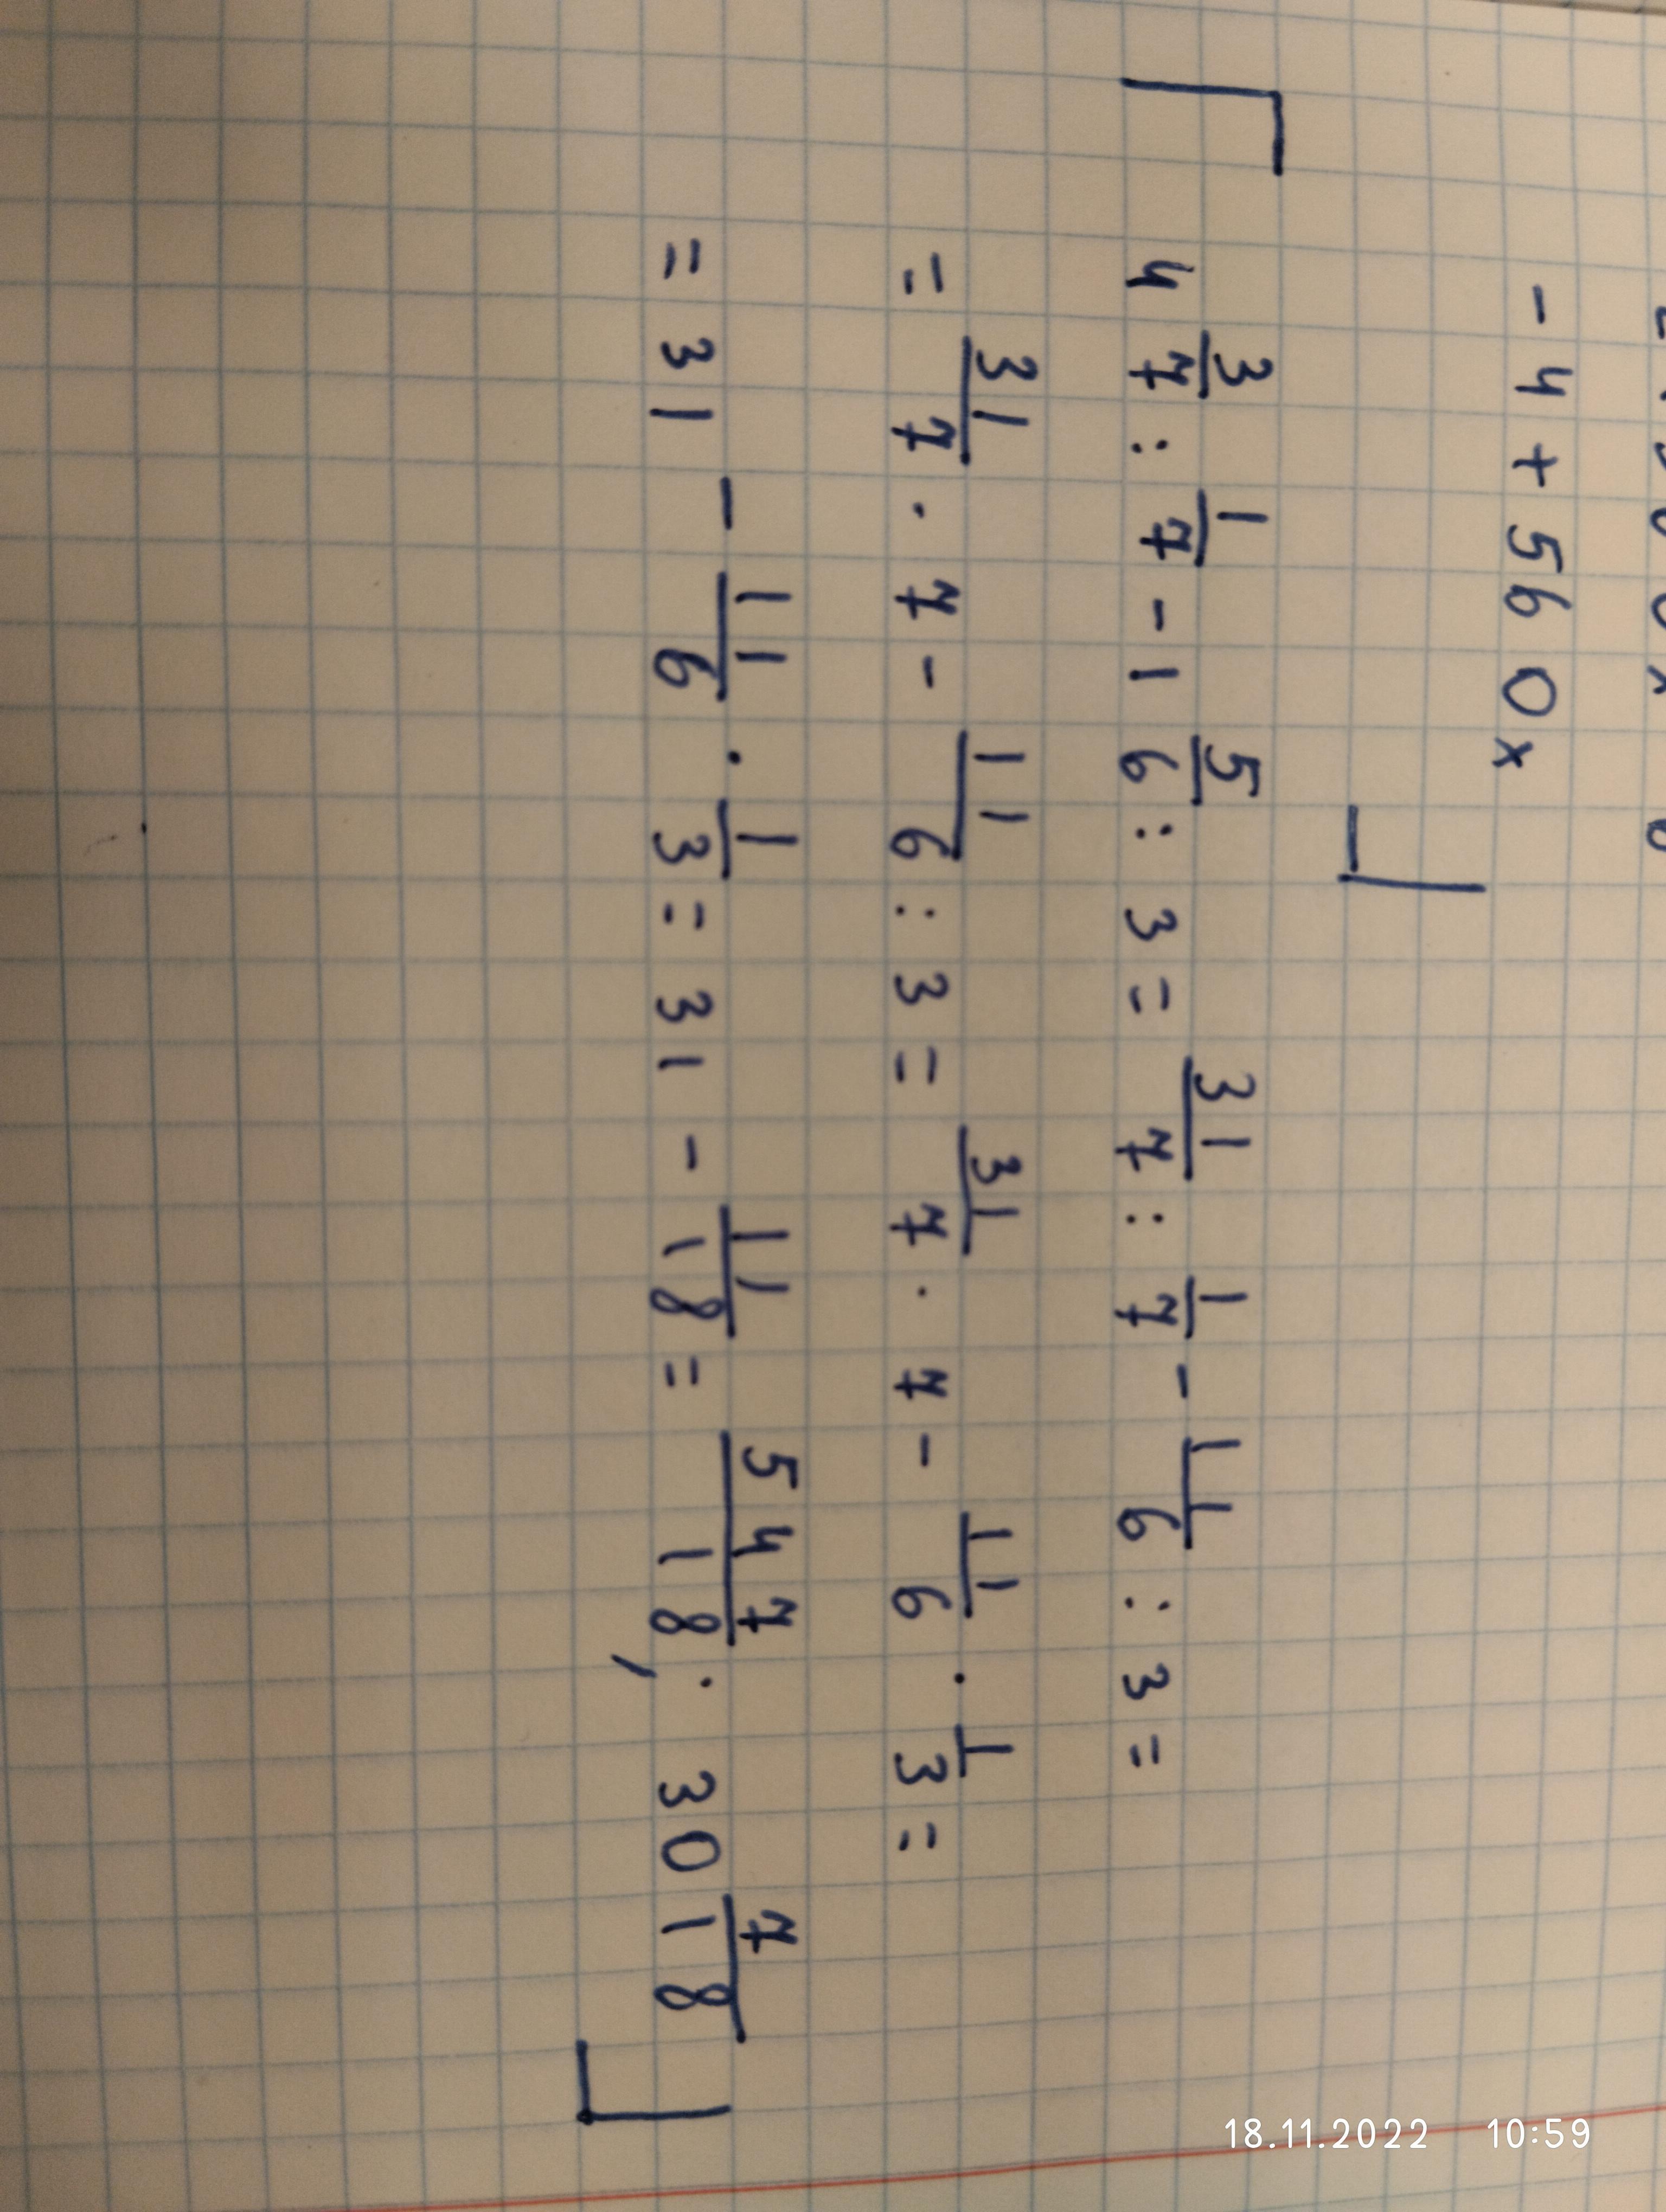 - 4 + 5 6 0 x
4 3/7 : 1/7 - 1 5/6 : 3 = 31/7 : 1/7 - 11/6 : 3 =
= 31/7 · 7 - 11/6 : 3 = 31/7 · 7 - 11/6 · 1/3 =
= 31 - 11/6 · 1/3 = 31 - 11/18 = 547/18; 30 7/18
18.11.2022 10:59